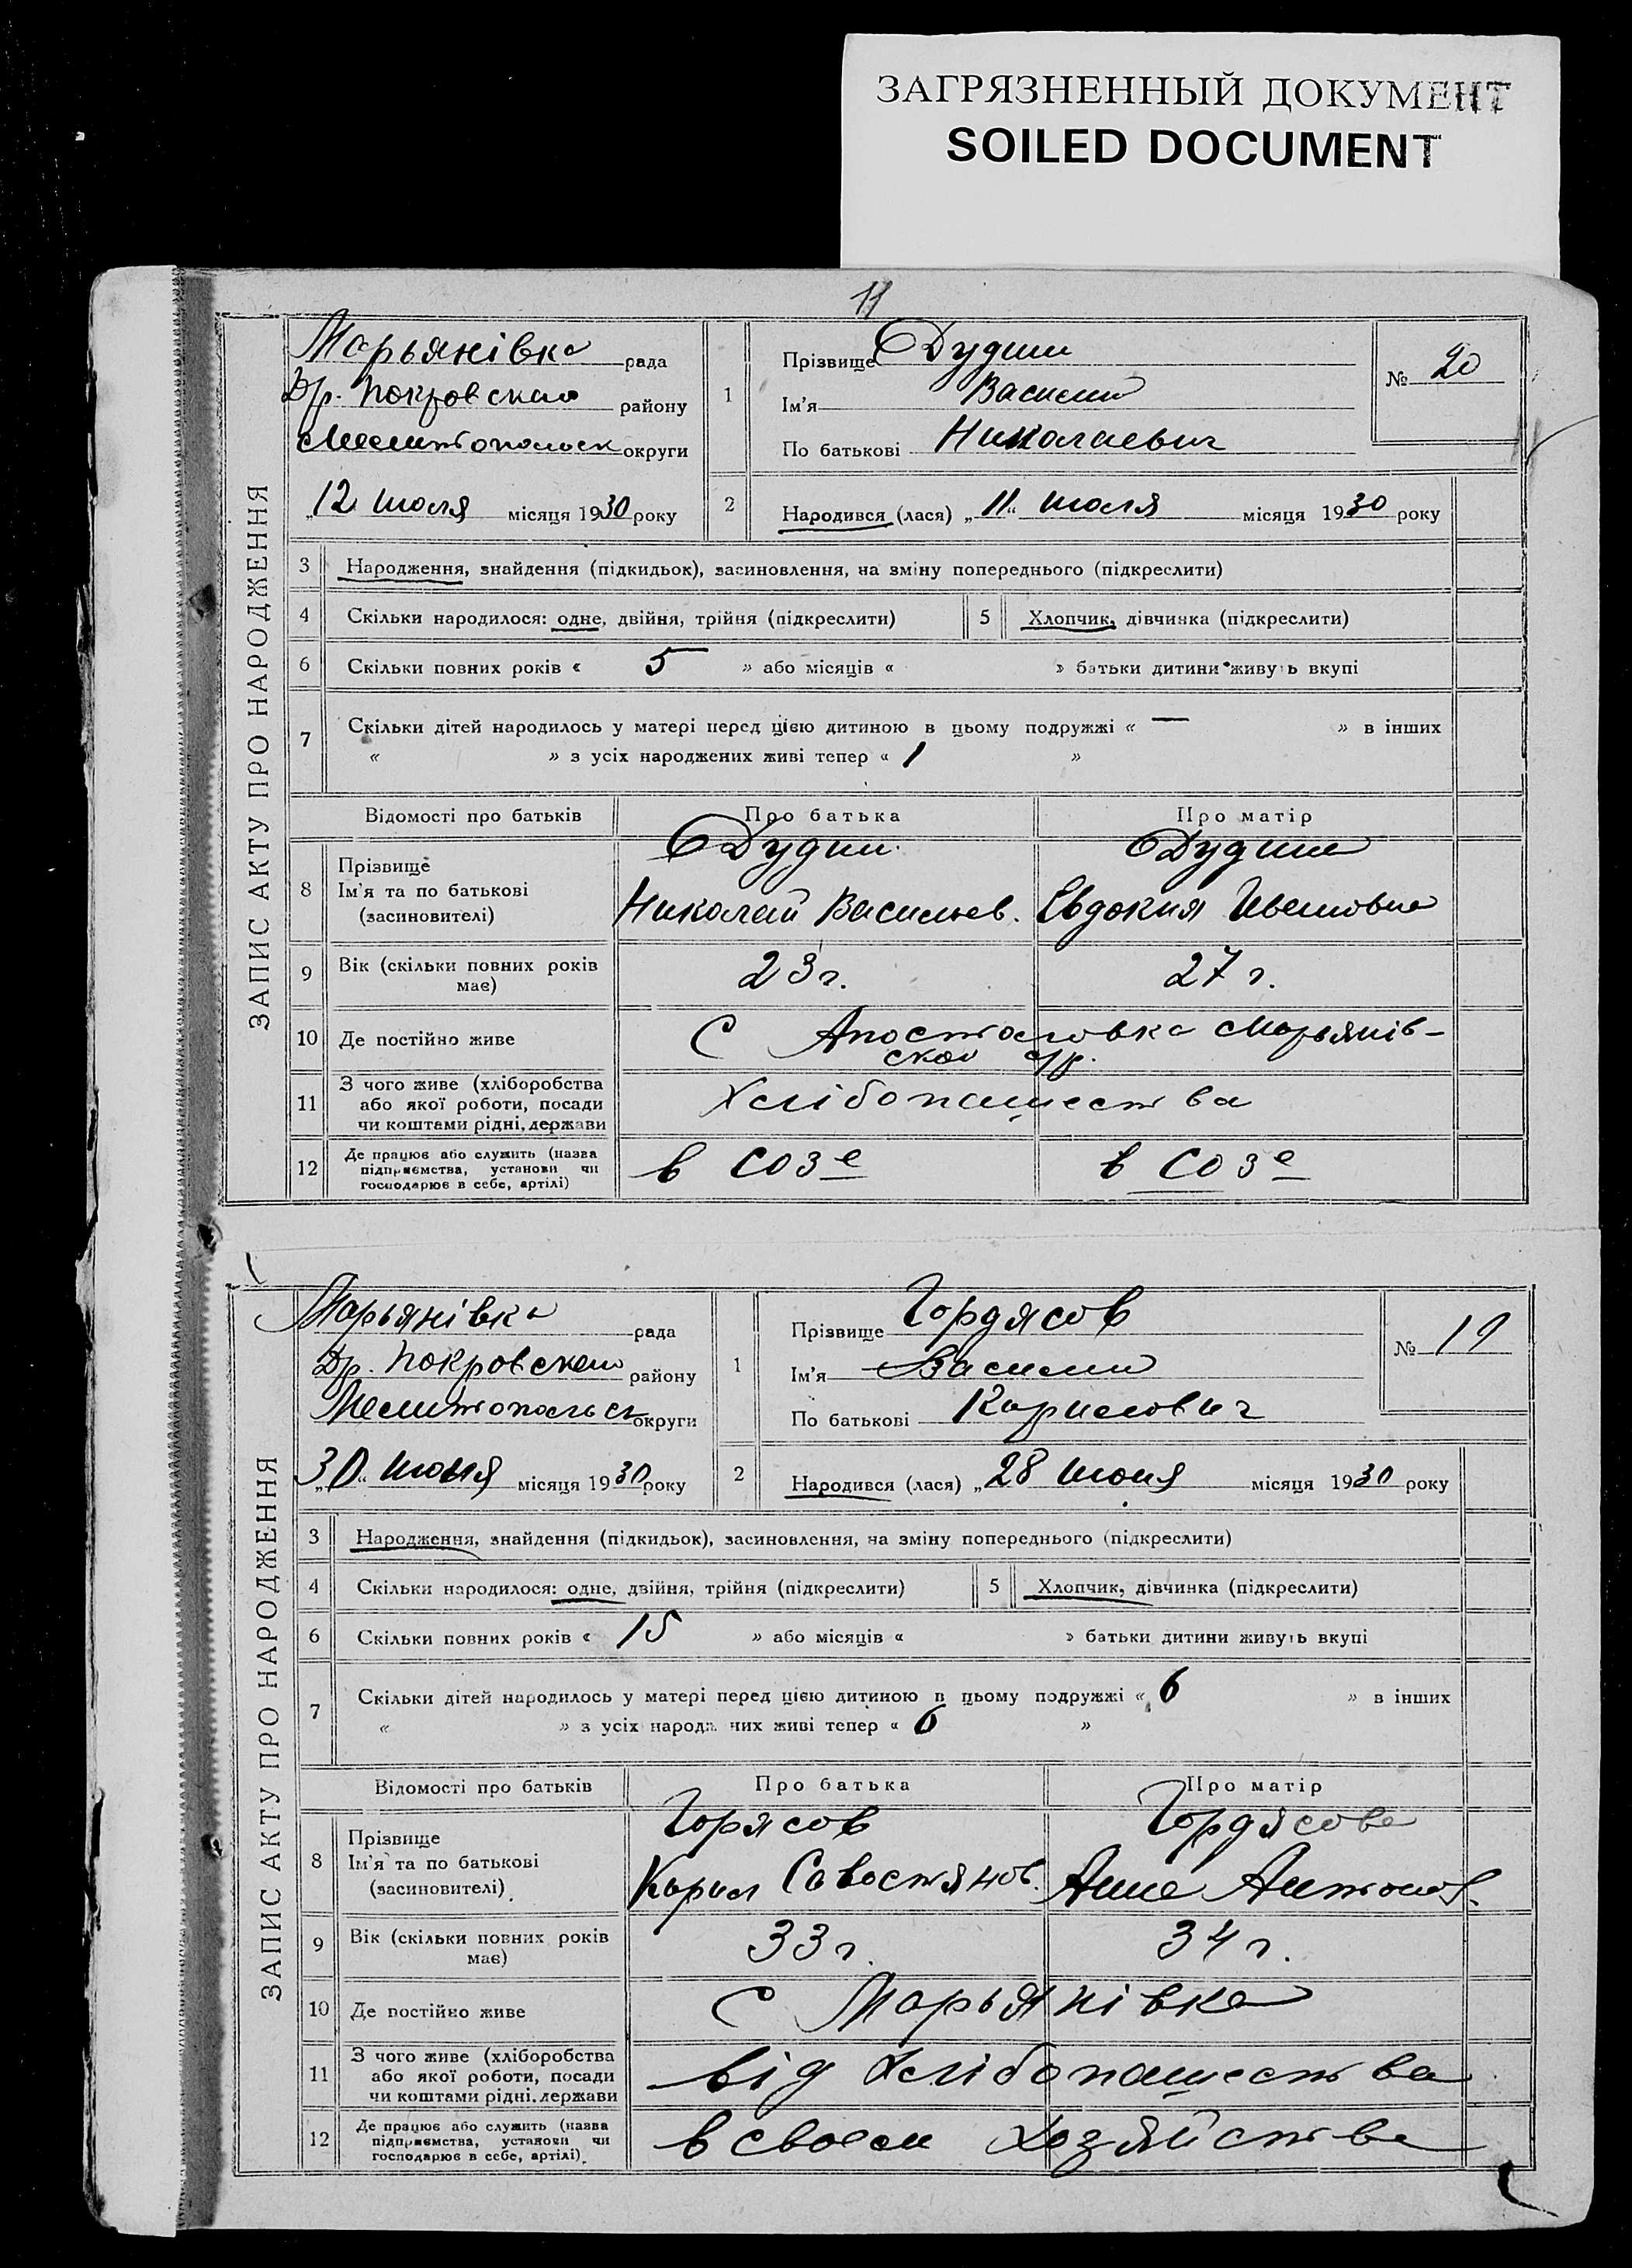 ЗАГРЯЗНЕННЫЙ ДОКУМЕНТ
SOILED DOCUMENT
11
ЗАПИС АКТУ ПРО НАРОДЖЕННЯ
Марьянівка рада
Др. Покровском району
Мелитопольск округи
„12 июля місяця 1930 року
1
Прізвище Дудин
Ім'я Василий
По батькові Николаевич
№ 20
2
Народився (лася) „11“ июля місяця 1930 року
3 Народження, знайдення (підкидьок), засиновлення, на зміну попереднього (підкреслити)
4 Скільки народилося: одне, двійня, трійня (підкреслити) 5 Хлопчик, дівчинка (підкреслити)
6 Скільки повних років « 5 » або місяців « » батьки дитини живуть вкупі
7 Скільки дітей народилось у матері перед цією дитиною в цьому подружжі « — » в інших
« » з усіх народжених живі тепер « 1 »
Відомості про батьків Про батька Про матір
8 Прізвище
Ім'я та по батькові
(засиновителі)
Дудин Дудина
Николай Васильев. Евдокия Ивановна
9 Вік (скільки повних років
має)
23 г. 27 г.
10 Де постійно живе С Апостоловка Марьянів-
ской с/р.
11 З чого живе (хліборобства
або якої роботи, посади
чи коштами рідні, держави
Хлібопашества
12 Де працює або служить (назва
підприємства, установи чи
господарює в себе, артілі)
в созе в созе
ЗАПИС АКТУ ПРО НАРОДЖЕННЯ
Марьянівка рада
Др. Покровском району
Мелитопольск округи
„30“ июня місяця 1930 року
1
Прізвище Гордясов
Ім'я Василий
По батькові Карилович
№ 19
2
Народився (лася) „28 июня місяця 1930 року
3 Народження, знайдення (підкидьок), засиновлення, на зміну попереднього (підкреслити)
4 Скільки народилося: одне, двійня, трійня (підкреслити) 5 Хлопчик, дівчинка (підкреслити)
6 Скільки повних років « 15 » або місяців « » батьки дитини живуть вкупі
7 Скільки дітей народилось у матері перед цією дитиною в цьому подружжі « 6 » в інших
« » з усіх народж них живі тепер « 6 »
Відомості про батьків Про батька Про матір
8 Прізвище
Ім'я та по батькові
(засиновителі)
Горясов Гордясова
Карил Савостянов. Анна Антонов.
9 Вік (скільки повних років
має)
33 г. 34 г.
10 Де постійно живе С Марьянівка
11 З чого живе (хліборобства
або якої роботи, посади
чи коштами рідні, держави
від Хлібопашества
12 Де працює або служить (назва
підприємства, установи чи
господарює в себе, артілі)
в своем хозяйстве